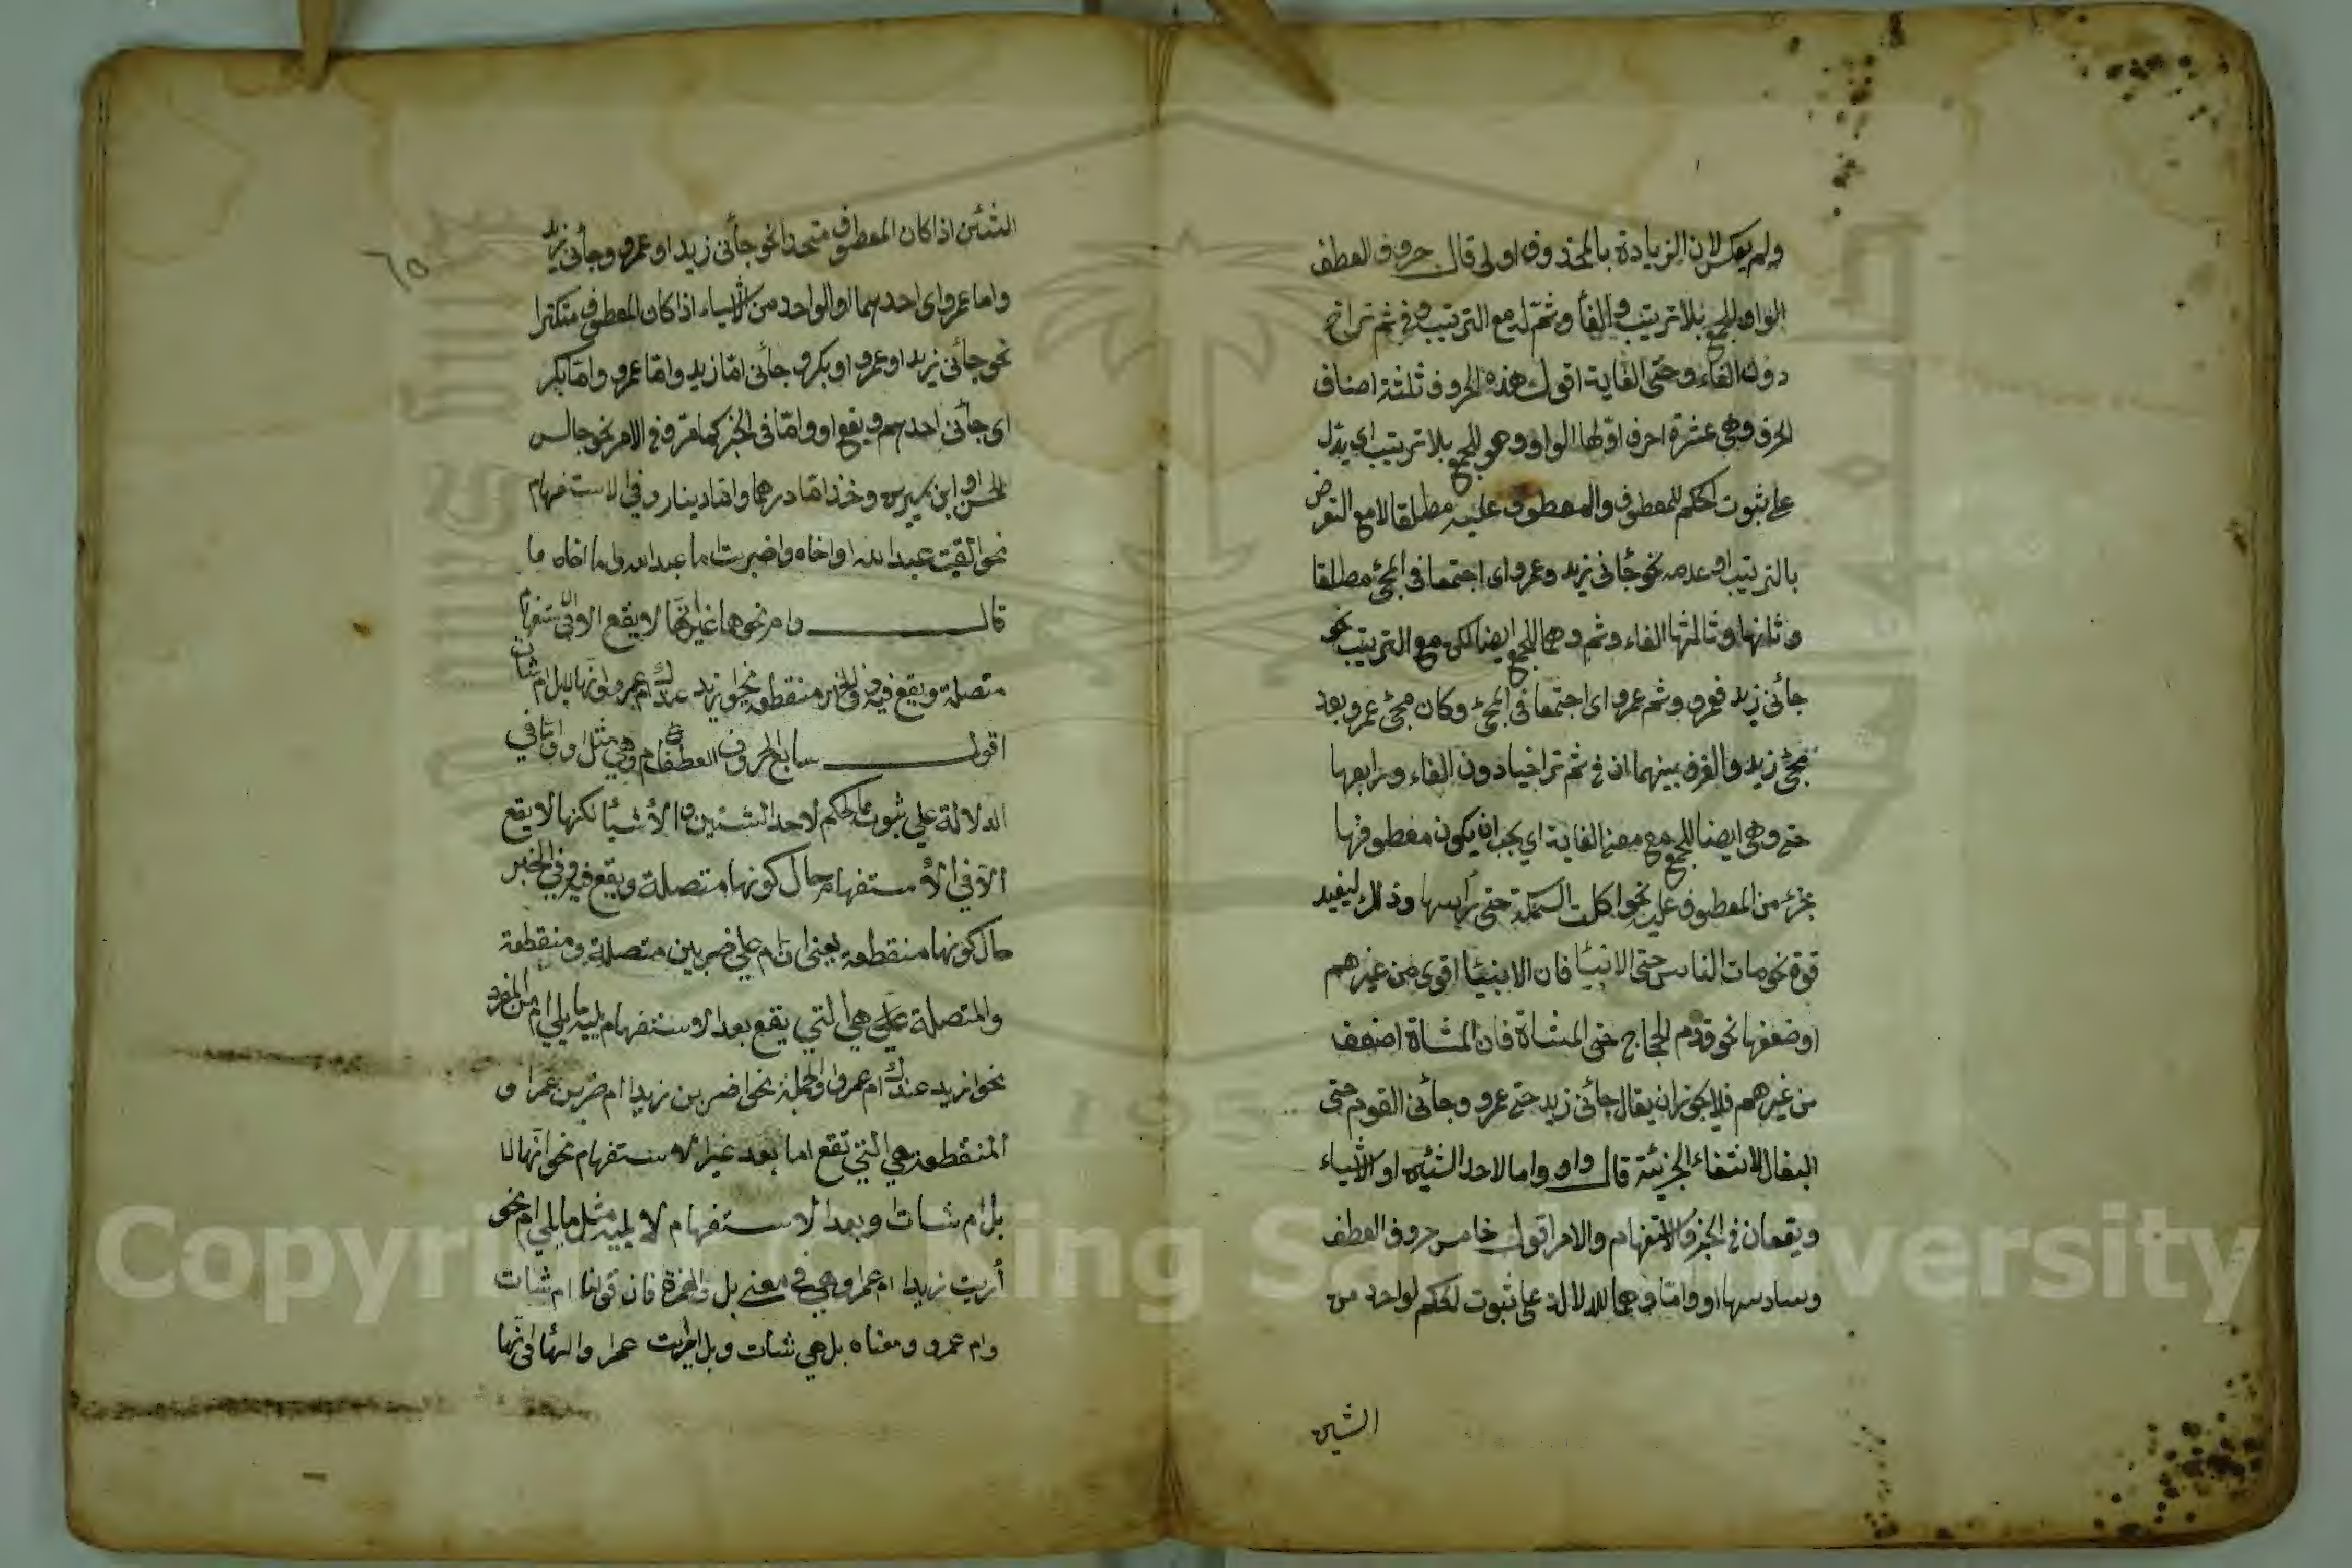 ولم يعكس لان الزيادة بالمحذوف اولى قال حروف العطف
الواو للجمع بلا ترتيب والفأ وثمّ له مع الترتيب وفي ثم تراخ
دون الفاء وحتى الغاية اقول هذه الحروف ثلثة اصناف
الحرف وهي عشرة احرف اولها الواو وهو للجمع بلا ترتيب اي يدل
على ثبوت الحكم للمعطوف والمعطوف عليه مطلقا لا مع التعرض
بالترتيب او عدمه نحو جأني زيد وعمرو اى اجتمعا في المجئ مطلقا
وثانيها وثالثها الفاء وثم وهما للجمع ايضا لكن مع الترتيب نحو
جأني زيد فعمرو وثم عمرو اى اجتمعا في المجئ وكان مجئ عمرو بعد
مجئ زيد والفرق بينهما ان في ثم تراخيا دون الفاء ورابعها
حتى وهي ايضا للجمع مع معنى الغاية اي يجب ان يكون معطوفها
جزء من المعطوف عليه نحو اكلت السمكة حتى رأسها وذلك ليفيد
قوة نحو مات الناس حتى الانبيأ فان الانبيأ اقوى من غيرهم
اوضعفها نحو قدم الحجاج حتى المشاة فان المشاة اضعف
من غيرهم فلا يجوز ان يقال جأني زيد حتى عمرو وجأني القوم حتى
البغال لانتفاء الجزئية قال واو واما لاحد الشيئين او الاشياء
ويقعان في الخبر والاستفهام والامر اقول خامس حروف العطف
وسادسها او واما وهما للدلالة على ثبوت الحكم لواحد من
الشيين
٦٥
الشيئين اذا كان المعطوف متحدا نحو جأني زيد او عمرو وجأني زيد
واما عمرو اى احدهما او الواحد من الاشياء اذا كان المعطوف متكثرا
نحو جأني زيد او عمرو او بكر و جأني امّا زيد وامّا عمرو وامّا بكر
اى جأني احدهم ويقع او وامّا في الخبر كما مرّ وفي الامر نحو جالس
الحسن او ابن سيرين وخذ امّا درهما وامّا دينار وفي الاستفهام
نحو القيت عبد الله او اخاه واضربت اما عبد الله واما اخاه
قال وام نحوهما غير انها لا يقع الا في استفهام
متصلة ويقع فيه وفي الخبر منقطعة نحو ازيد عندك ام عمرو وانها لابل ام شات
اقول سابع الحروف العطف ام وهي مثل او وامّا في
الدلالة علي ثبوت الحكم لاحد الشيئين او الاشيأ لكنها لا يقع
الاّ في الاستفهام حال كونها متصلة ويقع فيه وفي الخبر
حال كونها منقطعة يعني ان ام علي ضربين متصلة ومنقطعة
والمتصلة هي التي يقع بعد الاستفهام يليه ما يلي ام من المفرد
نحو ازيد عندك ام عمرو والجملة نحو اضربن زيدا ام ضربن عمرا و
المنقطعة هي التي تقع اما بعد غير الاستفهام نحو انّها لا
بل ام شات او بعد الاستفهام لا يليه مثل ما يلي ام نحو
أريت زيدا ام عمرا وهي في معنى بل والهمزة فان قولنا ام شات
وام عمرو ومعناه بل هي شات وبل اريت عمرا وانها